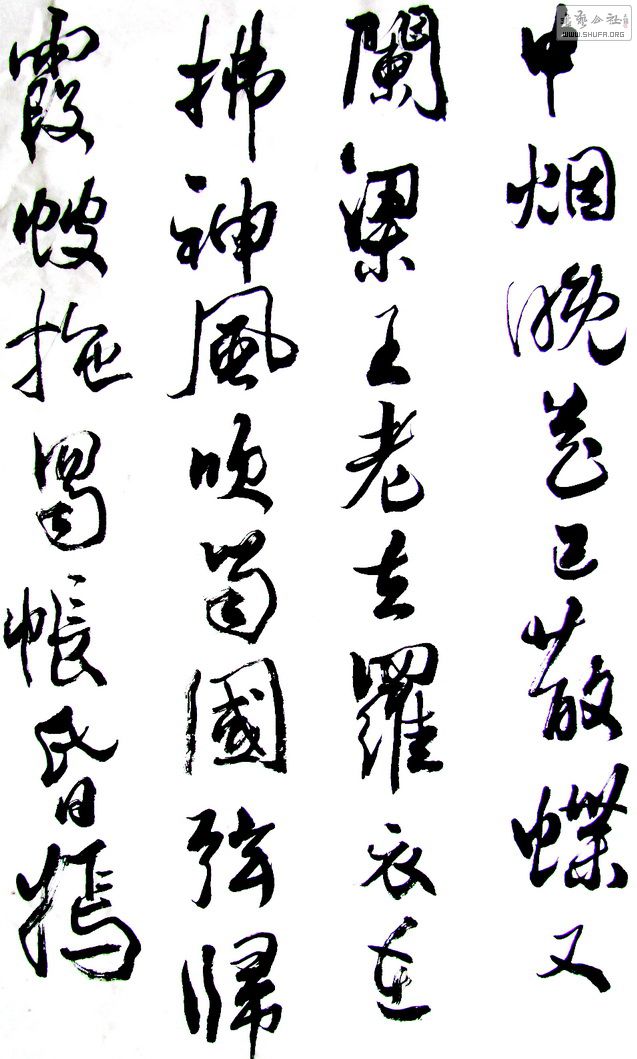 中烟晚花已散蝶又
闌梁王老去羅衣在
拂袖風吹蜀國弦歸
霞帔拖蜀帳昏嫣
WWW.SHUFA.ORG